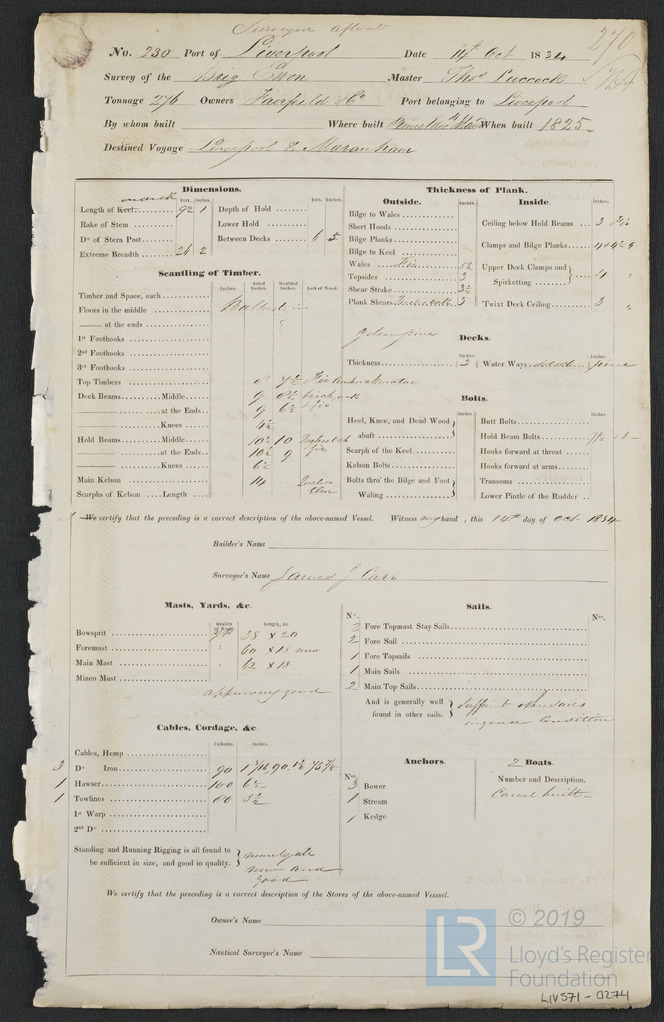 Surveyed afloat
270
No. 230 Port of Liverpool Date 14th Oct 1834
Survey of the Brig Master Thos Luccock
Tonnage 276 Owners Fairfield & Co Port belonging to Liverpool
By whom built Where built When built 1825
Destined Voyage Liverpool & Maranham
Dimensions.
Feet. Inches
Length of Keel 92 1
Rake of Stem
Do of Stern Post
Extreme Breadth 24 2
Feet. Inches.
Depth of Hold
Lower Hold
Between Decks 6 5
Scantling of Timber.
Inches. Sided Inches. Moulded Inches. Sort of Wood.
Timber and Space, each
Floors in the middle
—— at the ends
1st Foothooks
2nd Foothooks
3rd Foothooks
Top Timbers 8 7½
Deck Beams Middle 9
—— at the Ends 9 6½
—— Knees 4½
Hold Beams Middle 10½ 10
—— at the Ends 10½ 9
—— Knees 6½
Main Kelson 14
Scarphs of Kelson —— Length
Thickness of Plank.
Outside. Inches.
Bilge to Wales
Short Hoods
Bilge Planks
Bilge to Keel
Wales 5½
Topsides 3
Shear Strake 3½
Plank Shears 3
Inside. Inches.
Ceiling below Hold Beams 3
Clamps and Bilge Planks
Upper Deck Clamps and Spirketting 4 "
Twixt Deck Ceiling 3 "
Decks.
Inches
Thickness 3
Water Ways pine
Bolts.
Inches.
Heel, Knee, and Dead Wood abaft
Scarph of the Keel
Kelson Bolts
Bolts thro' the Bilge and Foot Waling
Inches
Butt Bolts
Hold Beam Bolts
Hooks forward at throat
Hooks forward at arms
Transoms
Lower Pintle of the Rudder
We certify that the preceding is a correct description of the above-named Vessel. Witness my hand, this 14th day of Oct 1834
Builder's Name
Surveyor's Name James J Carr
Masts, Yards, &c.
Quality Length, &c
Bowsprit 38 × 20
Foremast 60 × 18 new
Main Mast 62 × 18
Mizen Mast
appearing good
Sails.
No. No.
2 Fore Topmast Stay Sails
2 Fore Sail
1 Fore Topsails
1 Main Sails
2 Main Top Sails
And is generally well found in other sails.
in good Condition
Cables, Cordage, &c.
Fathoms. Inches.
Cables, Hemp
3 Do Iron 90
1 Hawser 100 6½
1 Towlines 80 3½
1st Warp
2nd Do
Standing and Running Rigging is all found to be sufficient in size, and good in quality.
new and
good
Anchors.
No.
3 Bower
1 Stream
1 Kedge
2 Boats.
Number and Description.
Carvel built
We certify that the preceding is a correct description of the Stores of the above-named Vesssel.
Owner's Name
Nautical Surveyor's Name
LR
© 2019
Lloyd's Register
Foundation
LIV571-0274